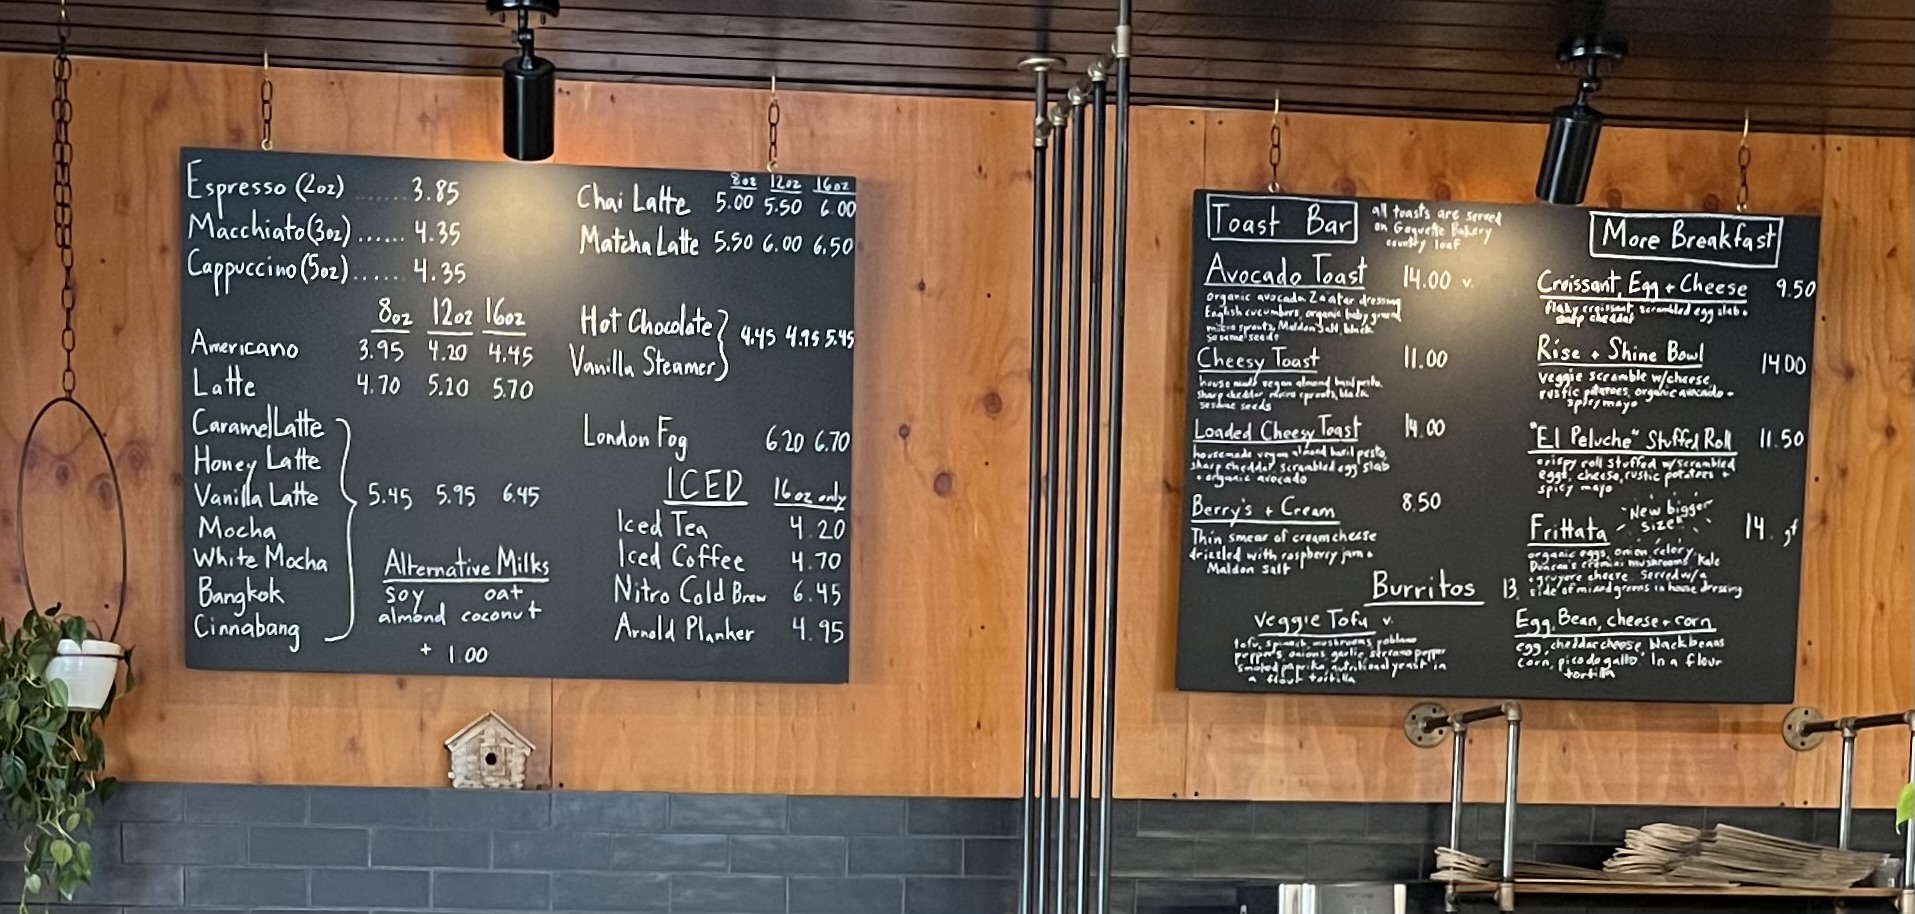 Espresso (2oz) ...... 3.85
Macchiato (3oz) ...... 4.35
Cappuccino (5oz) ...... 4.35
8oz 12oz 16oz
Americano 3.95 4.20 4.45
Latte 4.70 5.20 5.70
Caramel Latte
Honey Latte
Vanilla Latte 5.45 5.95 6.45
Mocha
White Mocha
Bangkok
Cinnabang
Alternative Milks
Soy oat
almond coconut
+ 1.00
8oz 12oz 16oz
Chai Latte 5.00 5.50 6.00
Matcha Latte 5.50 6.00 6.50
Hot Chocolate
Vanilla Steamer
4.45 4.95 5.45
London Fog 6.20 6.70
ICED 16oz only
Iced Tea 4.20
Iced Coffee 4.70
Nitro Cold Brew 6.45
Arnold Planker 4.95
Toast Bar
all toasts are served
on Goguette Bakery
country loaf
Avocado Toast 14.00 v.
organic avocado, Za'atar dressing
English cucumbers, organic baby greens
micro sprouts, Maldon Salt, black
sesame seeds
Cheesy Toast 11.00
house made vegan almond basil pesto,
sharp cheddar, micro sprouts, black
sesame seeds
Loaded Cheesy Toast 14.00
housemade vegan almond basil pesto,
sharp cheddar, scrambled egg slab
+ organic avocado
Berry's + Cream 8.50
Thin smear of cream cheese
drizzled with raspberry jam +
Maldon Salt
More Breakfast
Croissant, Egg + Cheese 9.50
flaky croissant, scrambled egg slab +
sharp cheddar
Rise + Shine Bowl 14.00
veggie scramble w/cheese
rustic potatoes, organic avocado +
spicy mayo
"El Peluche" Stuffed Roll 11.50
crispy roll stuffed w/scrambled
eggs, cheese, rustic potatoes +
spicy mayo
Frittata 14. gf
New bigger
size
organic eggs, onion, celery,
cremini mushrooms, Kale
+ gruyere cheese. Served w/a
side of mixed greens in house dressing
Burritos 13.
Veggie Tofu v.
tofu, spinach, mushrooms, poblano
peppers, onions, garlic, serrano pepper
smoked paprika, nutritional yeast in
a flour tortilla
Egg, Bean, cheese + corn
egg, cheddar cheese, black beans
corn, pico de gallo. In a flour
tortilla